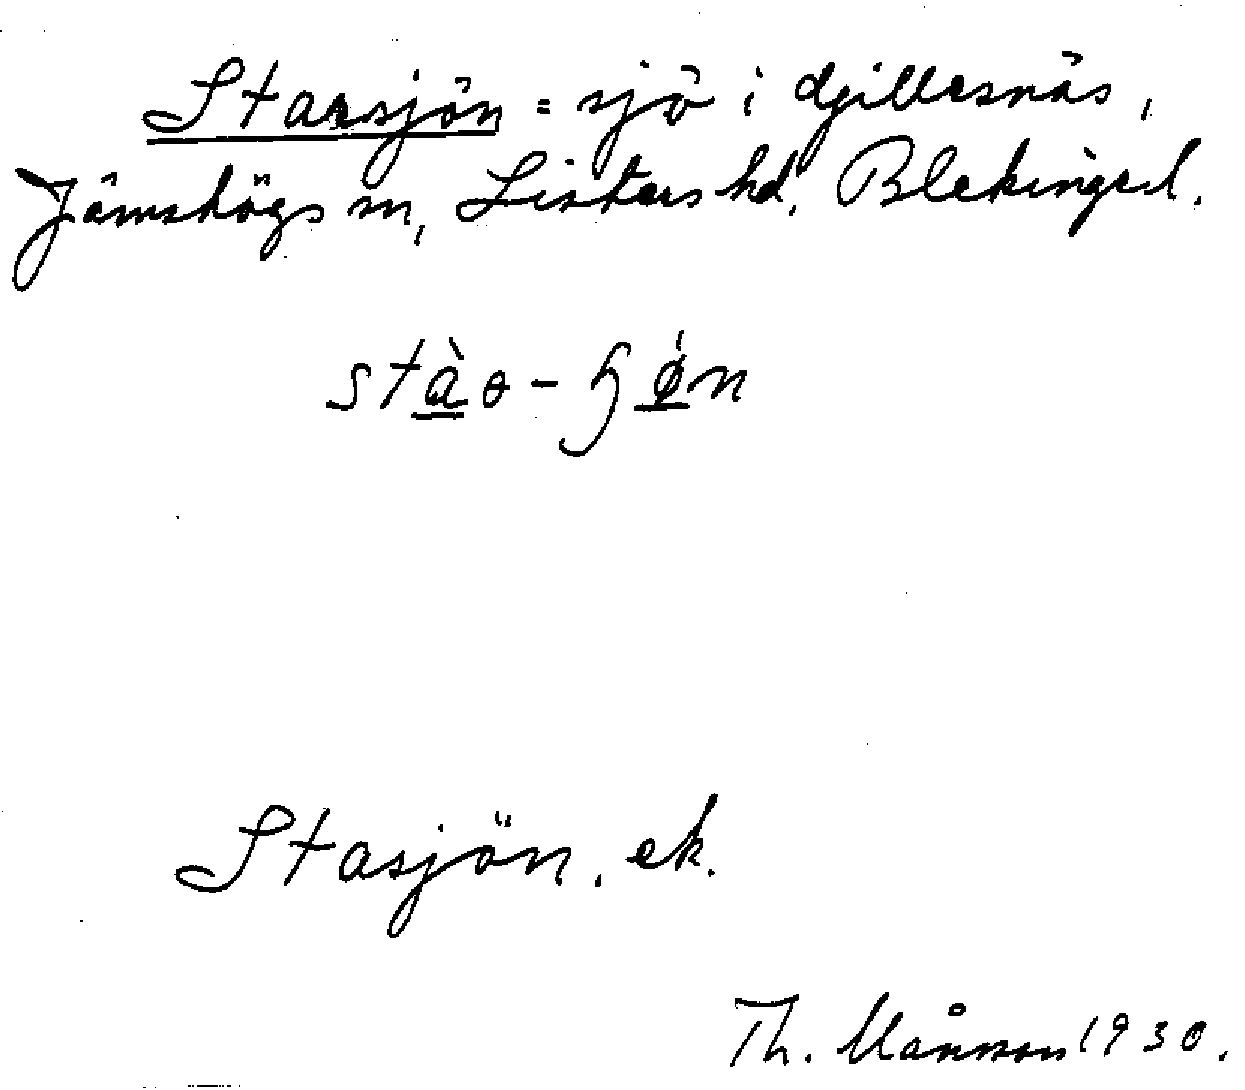 Starsjön = sjö i Gyillesnäs,
Jämshögs sn, Listers hd, Blekinge l.
Stasjön. ek.
Th. Månsson 1930.